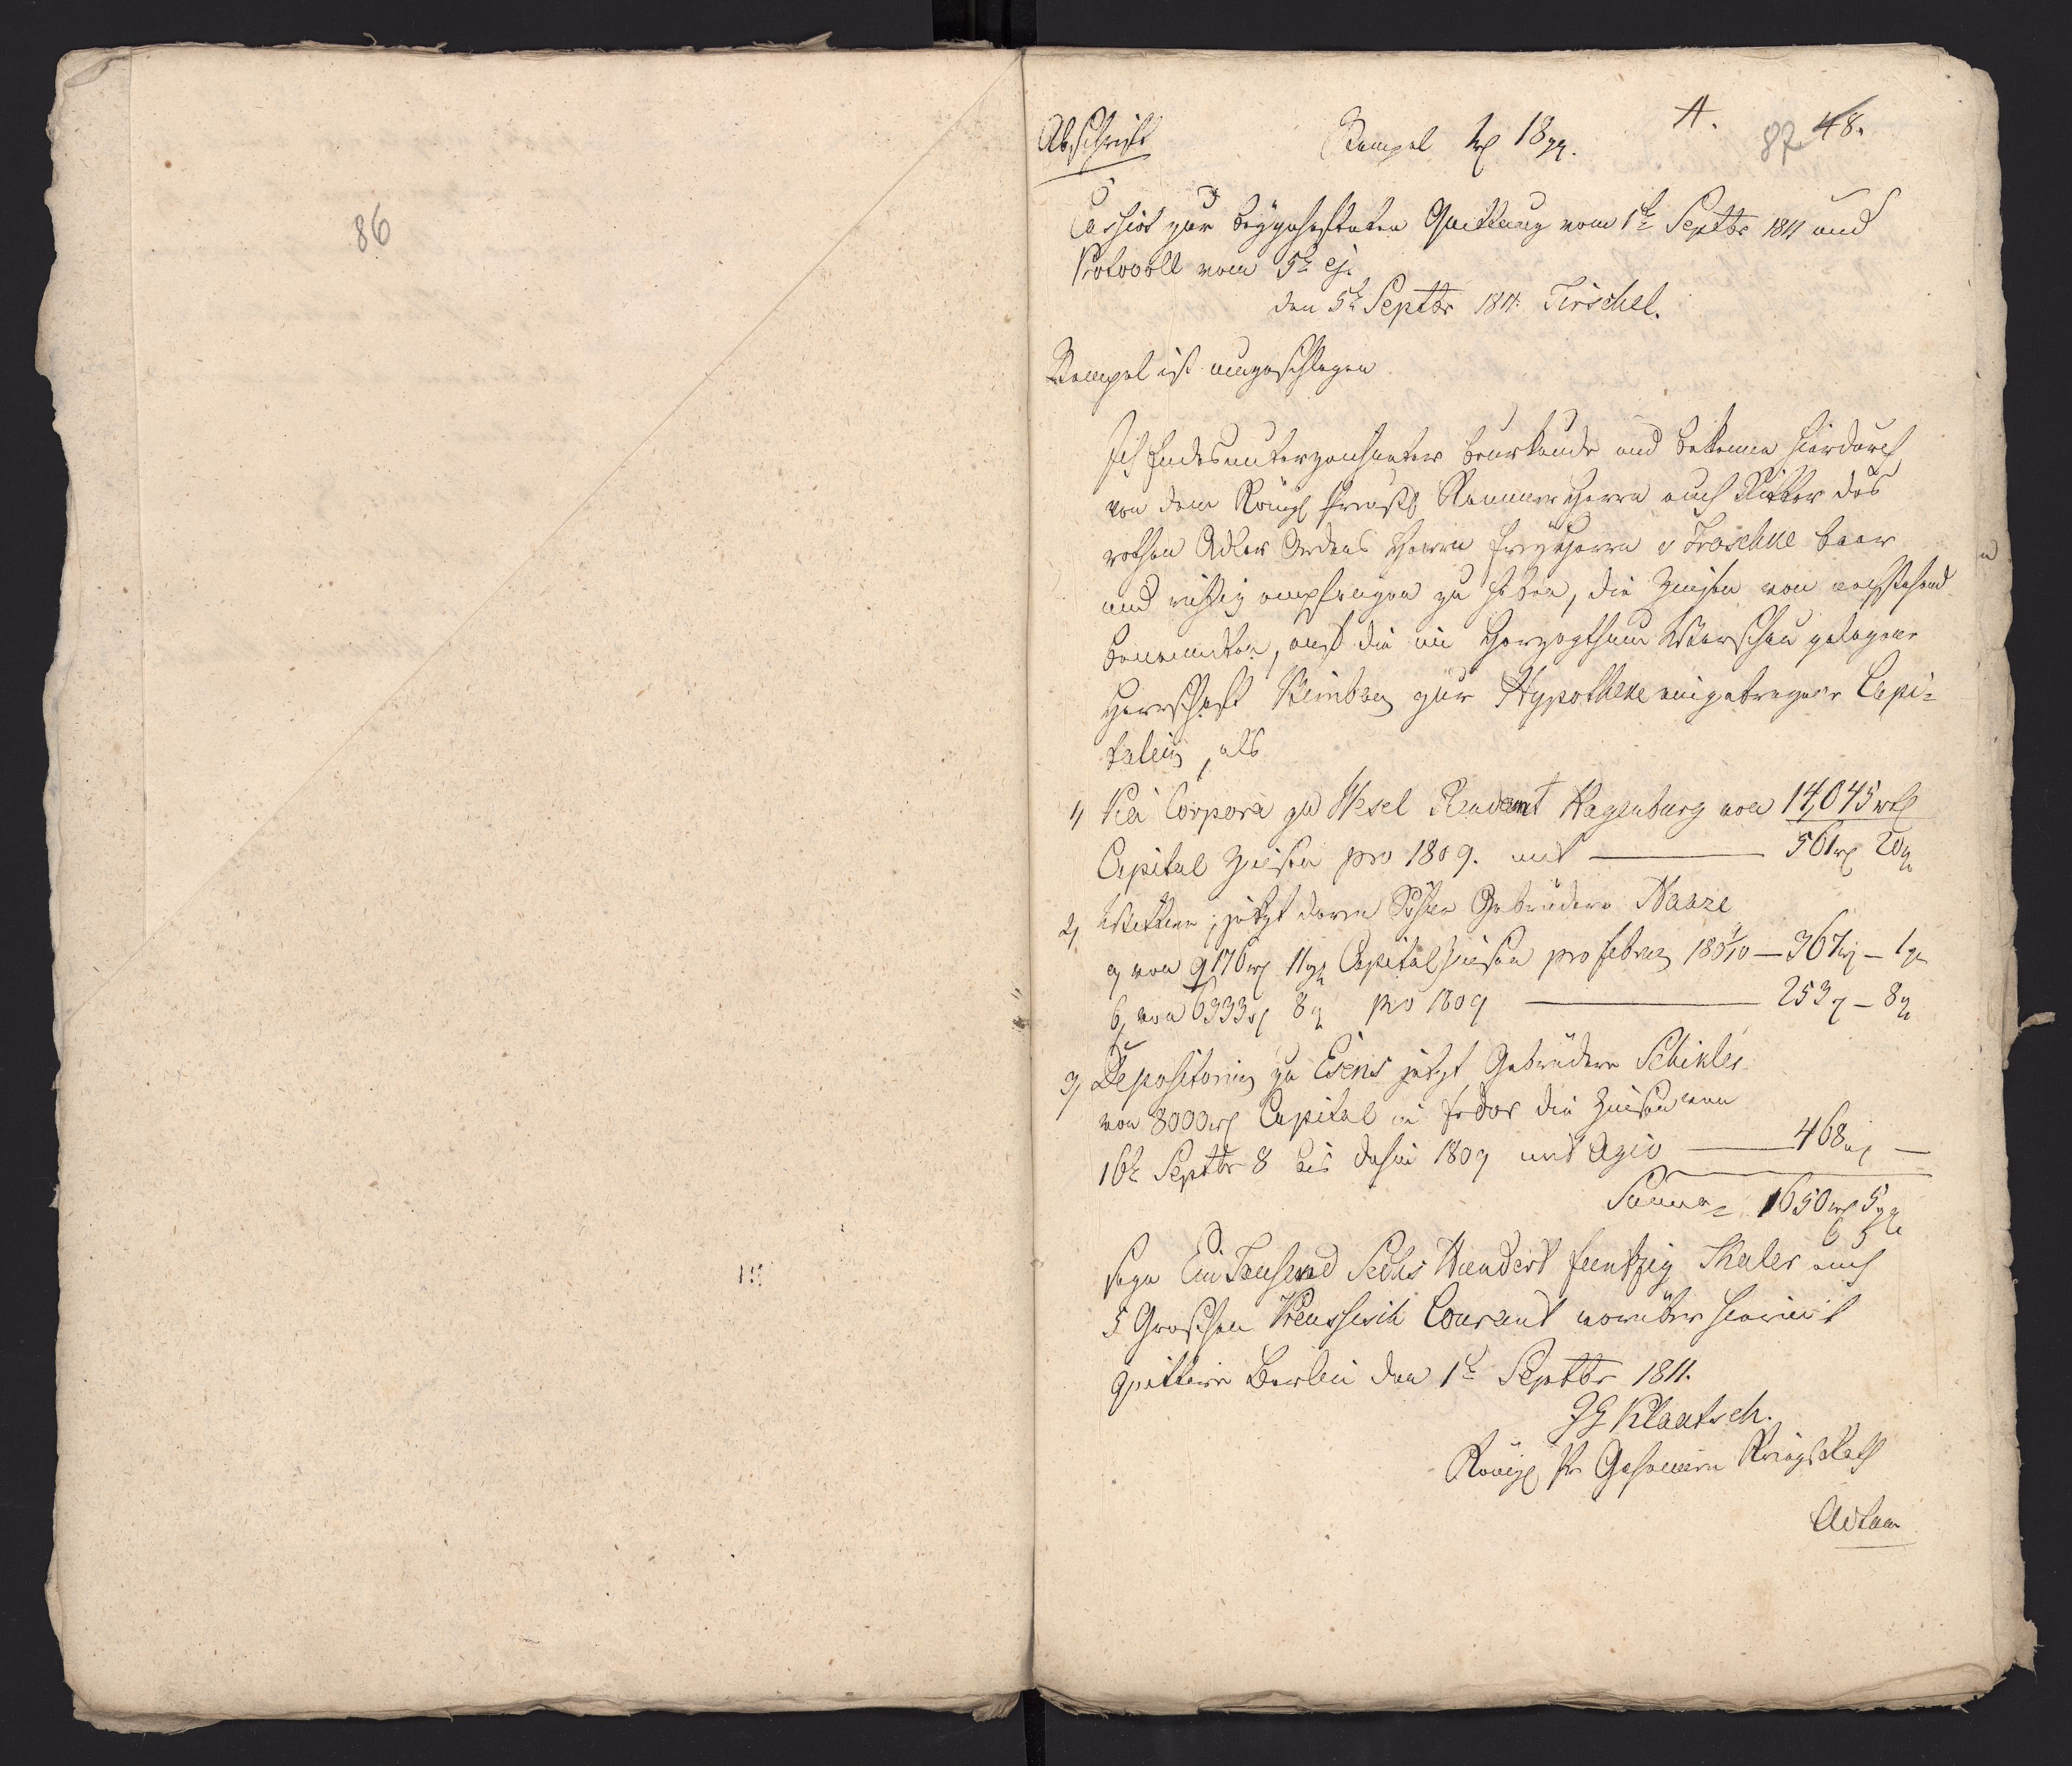 86
Abschrift
Stempel 2 rt 18 gg.
A.
87 48.
Cassirt zur beygehefteten Quittung vom 1t Septbr 1811 und
Protocoll vom 5t ej.
den 5t Septbr 1811. Tirschel.
Stempel ist umgeschlagen
Ich Endesunterzeichneter beurkunde und bekenne hierdurch
von dem Königl Preußl Kammerherrn auch Ritter des
rothen Adler Ordens Herrn Freyherrn v Troschke baar
und richtig empfangen zu haben, die Zinsen von nachstehend
benannten, auf die im Herzogthum Warschau gelegene
Herrschaft zur Hypotheke eingetragene Capi-
talien, als
1, Pia Corpora zu Wesel Rendant Hagenburg von 14,045 rtl
Capital Zinsen pro 1809. mit — 561 rt 20 g
2, Wittwe, jetzt deren Söhne Gebrüdere Naaze
a, von 9176 rt 11 gg Capital Zinsen pro Febr 1809/10 — 367 rt — 1 g
b, von 6333 rt 8 g pro 1809 — 253 rt — 8 g
3, Depositorium zu Esens jetzt Gebrüdere Schikler
von 8000 rt Capital in Frdor die Zinsen vom
16t Septbr 8 bis dahin 1809 mit Agio — 468 rt —
Summa 1650 rt 5 gg
6 5
sage Ein Tausend Sechs Hundert funfzig Thaler auch
5 Groschen Preussisch Courant worüber hiermit
quittire Berlin den 1t Septbr 1811.
Klaatsch.
Königl Pr Geheimer KriegsRath